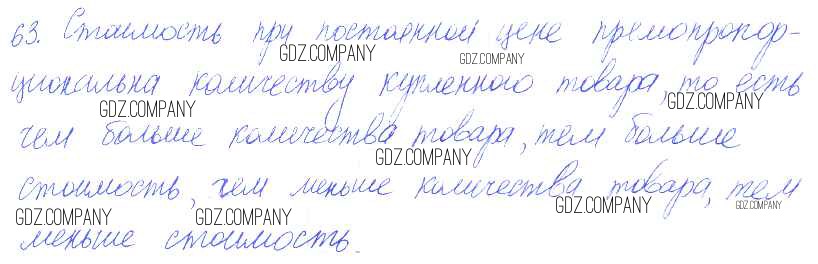 63. Стоимость при постоянной цене премопропор-
GDZ.COMPANY GDZ.COMPANY
циональна количеству купленного товара, то есть
GDZ.COMPANY GDZ.COMPANY
чем больше количества товара, тем больше
GDZ.COMPANY
стоимость, чем меньше количества товара, тем
GDZ.COMPANY GDZ.COMPANY GDZ.COMPANY GDZ.COMPANY
меньше стоимость.